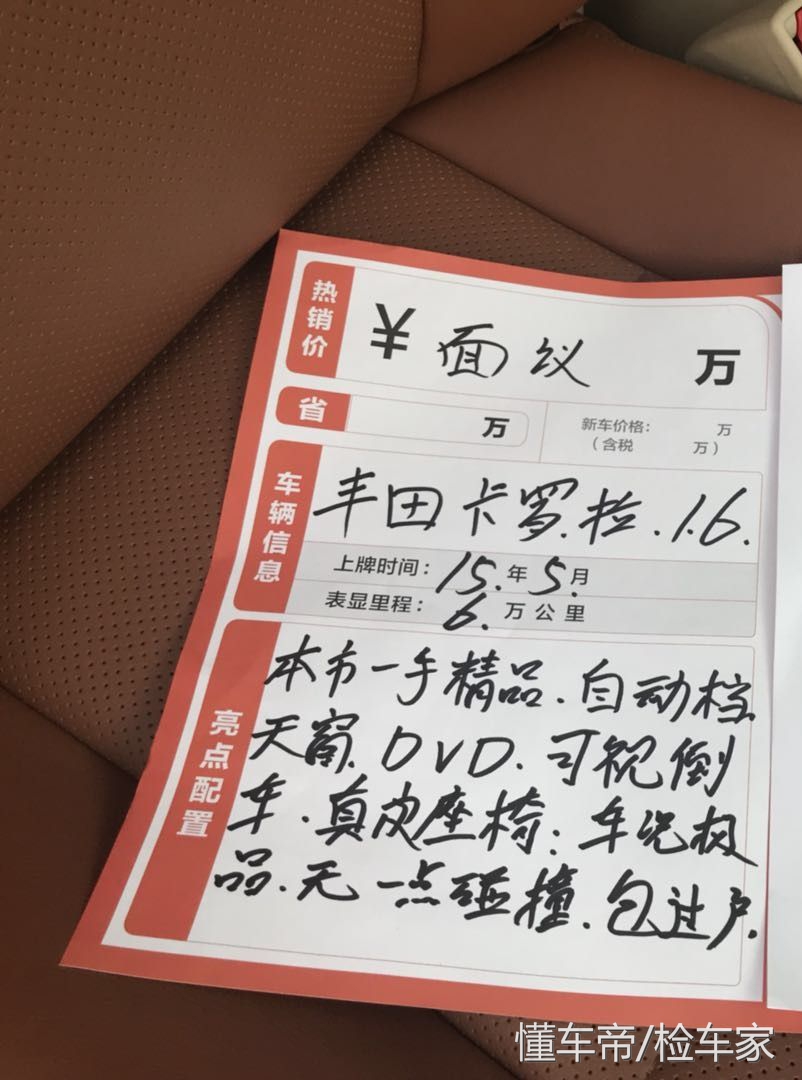 热销价
¥ 面议 万
省 万
新车价格: 万
(含税 万)
车辆信息
丰田卡罗.拉.1.6.
上牌时间: 15.年 5.月
表显里程: 6.万公里
亮点配置
本市一手精品.自动档
天窗.DVD.可视倒
车.真皮座椅:车况极
品.无一点碰撞.包过户.
懂车帝/检车家